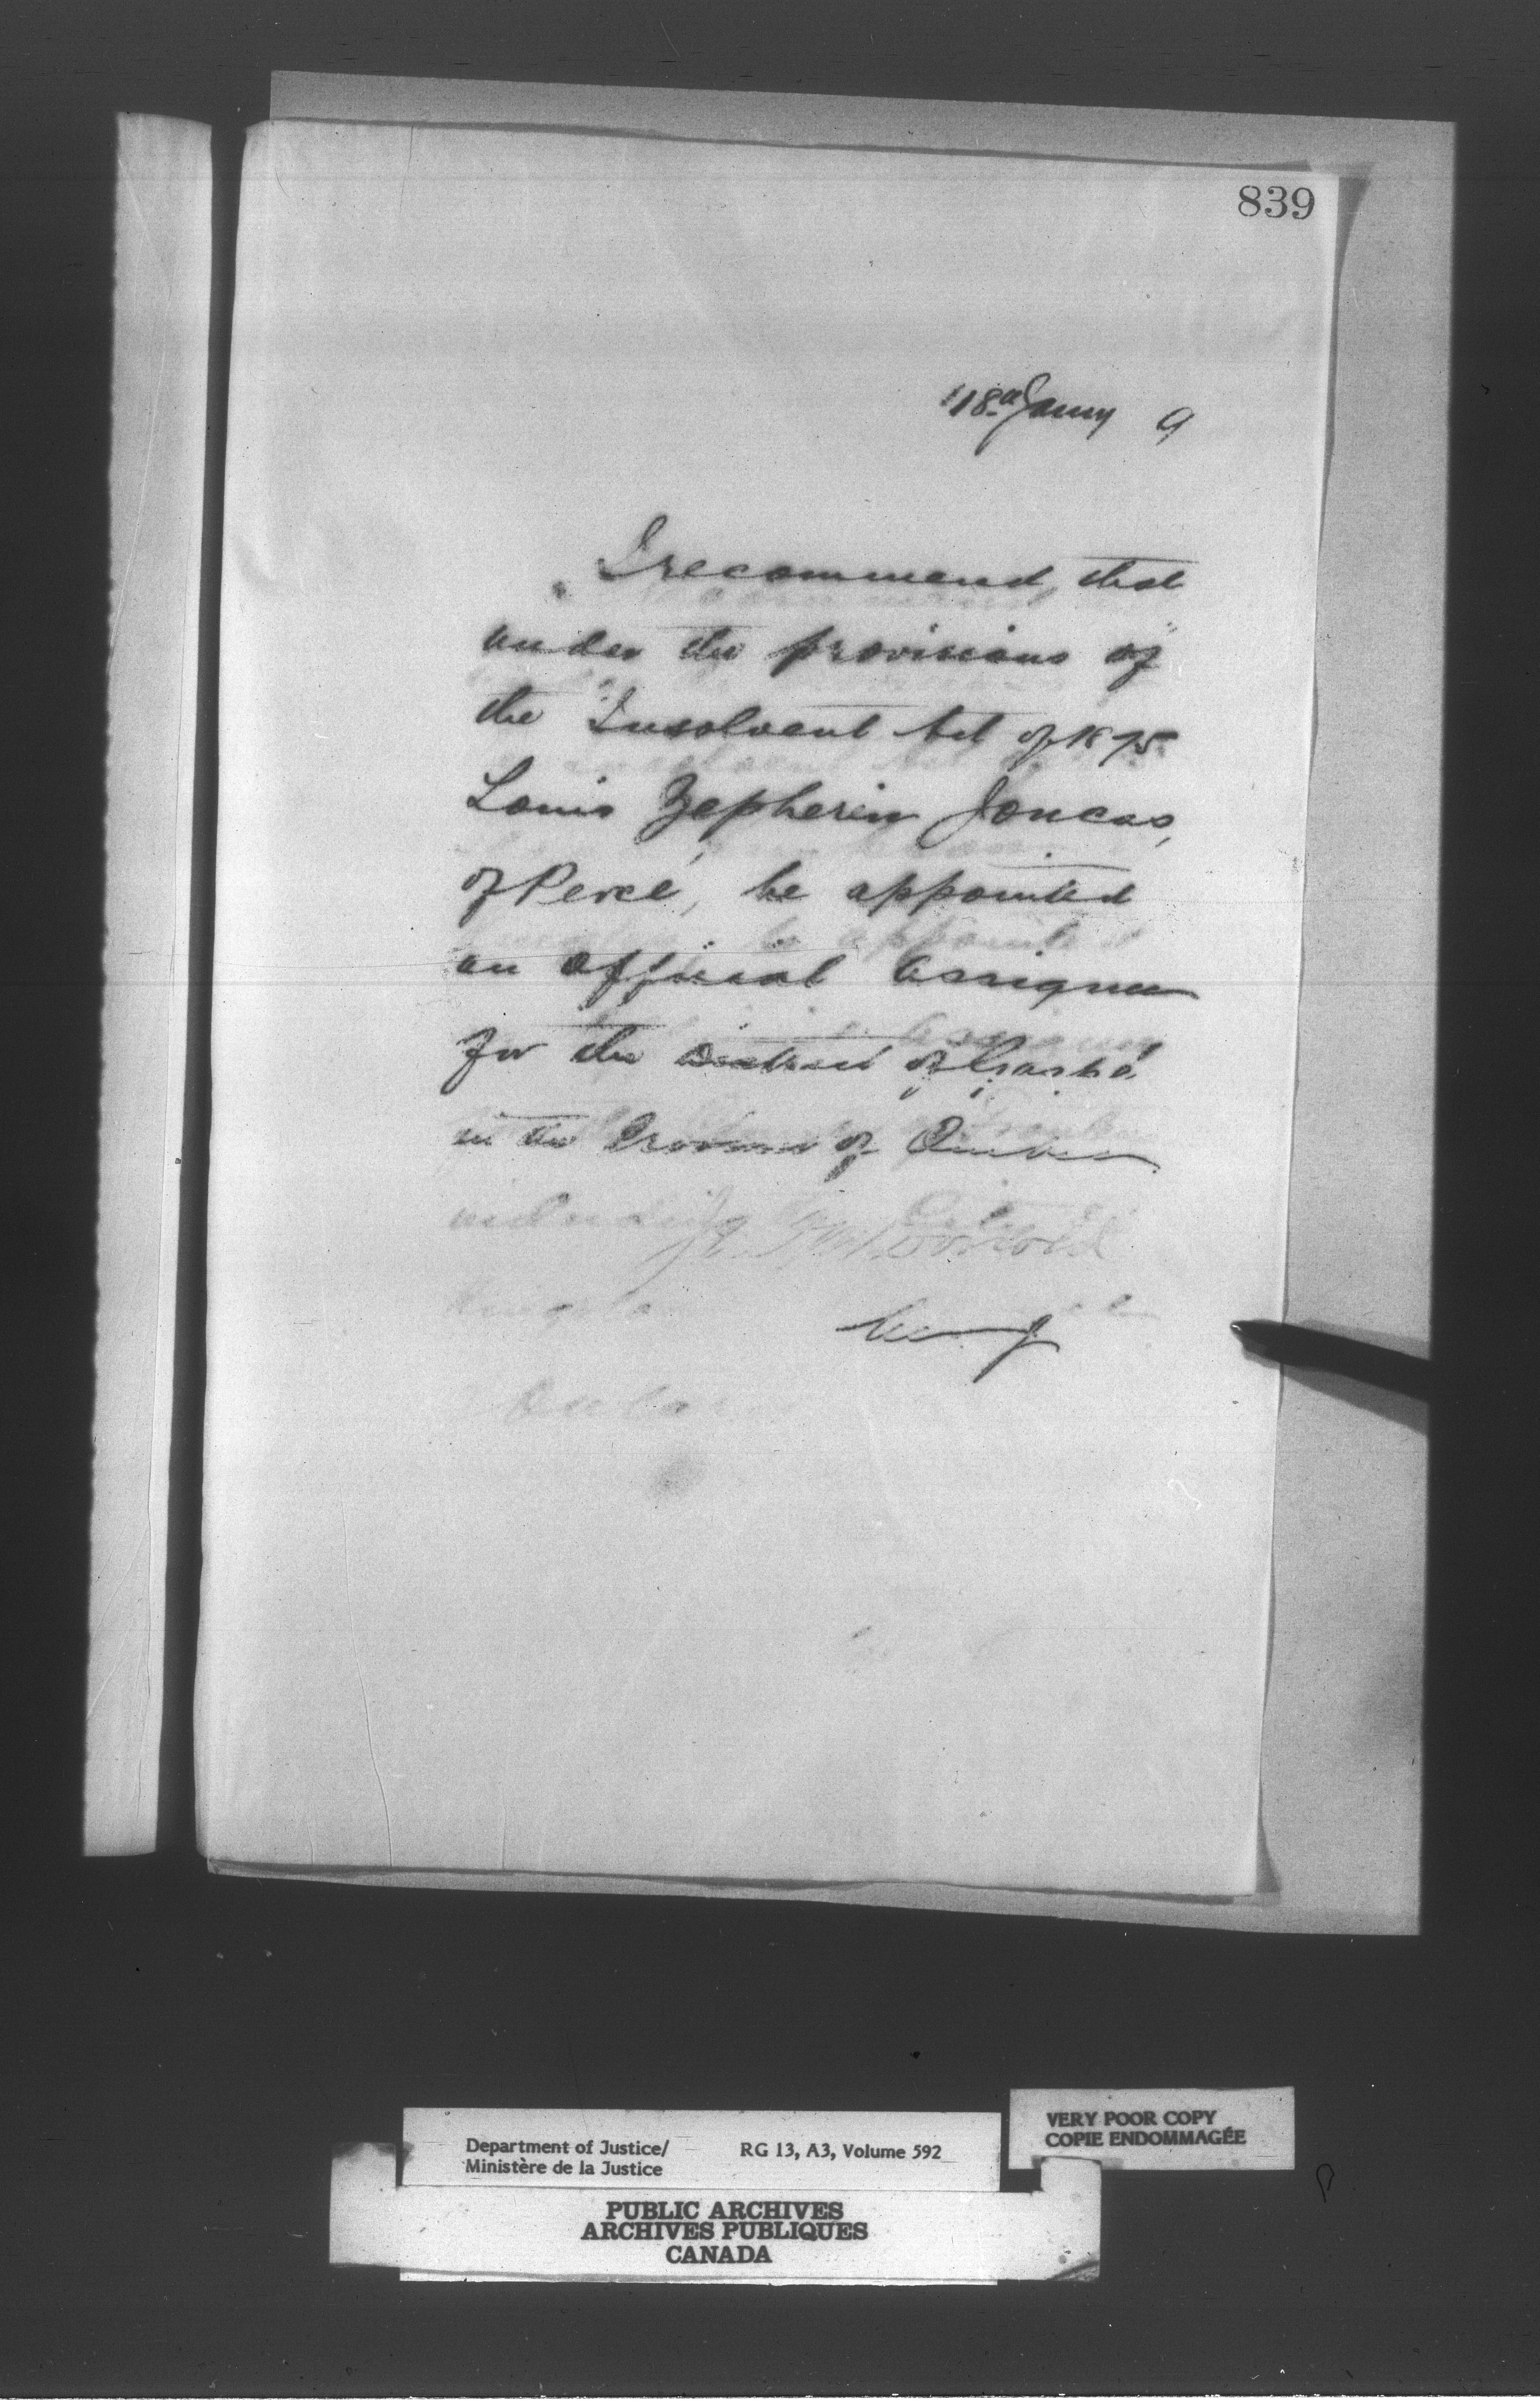 839
18th Jany 9
I recommend, that
under the provisions of
the Insolvent Act of 1875
Louis Zepherin Joncas,
of Percé, be appointed
an Official Assignee
for the District of Gaspé
in the Province of Quebec
Department of Justice/ RG 13, A3, Volume 592
Ministère de la Justice
VERY POOR COPY
COPIE ENDOMMAGÉE
PUBLIC ARCHIVES
ARCHIVES PUBLIQUES
CANADA